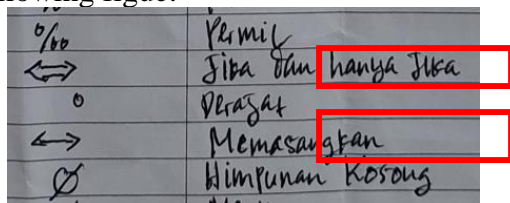 ‰ Permil
⇔ Jika dan hanya Jika
° Derajat
↔ Memasangkan
∅ Himpunan Kosong